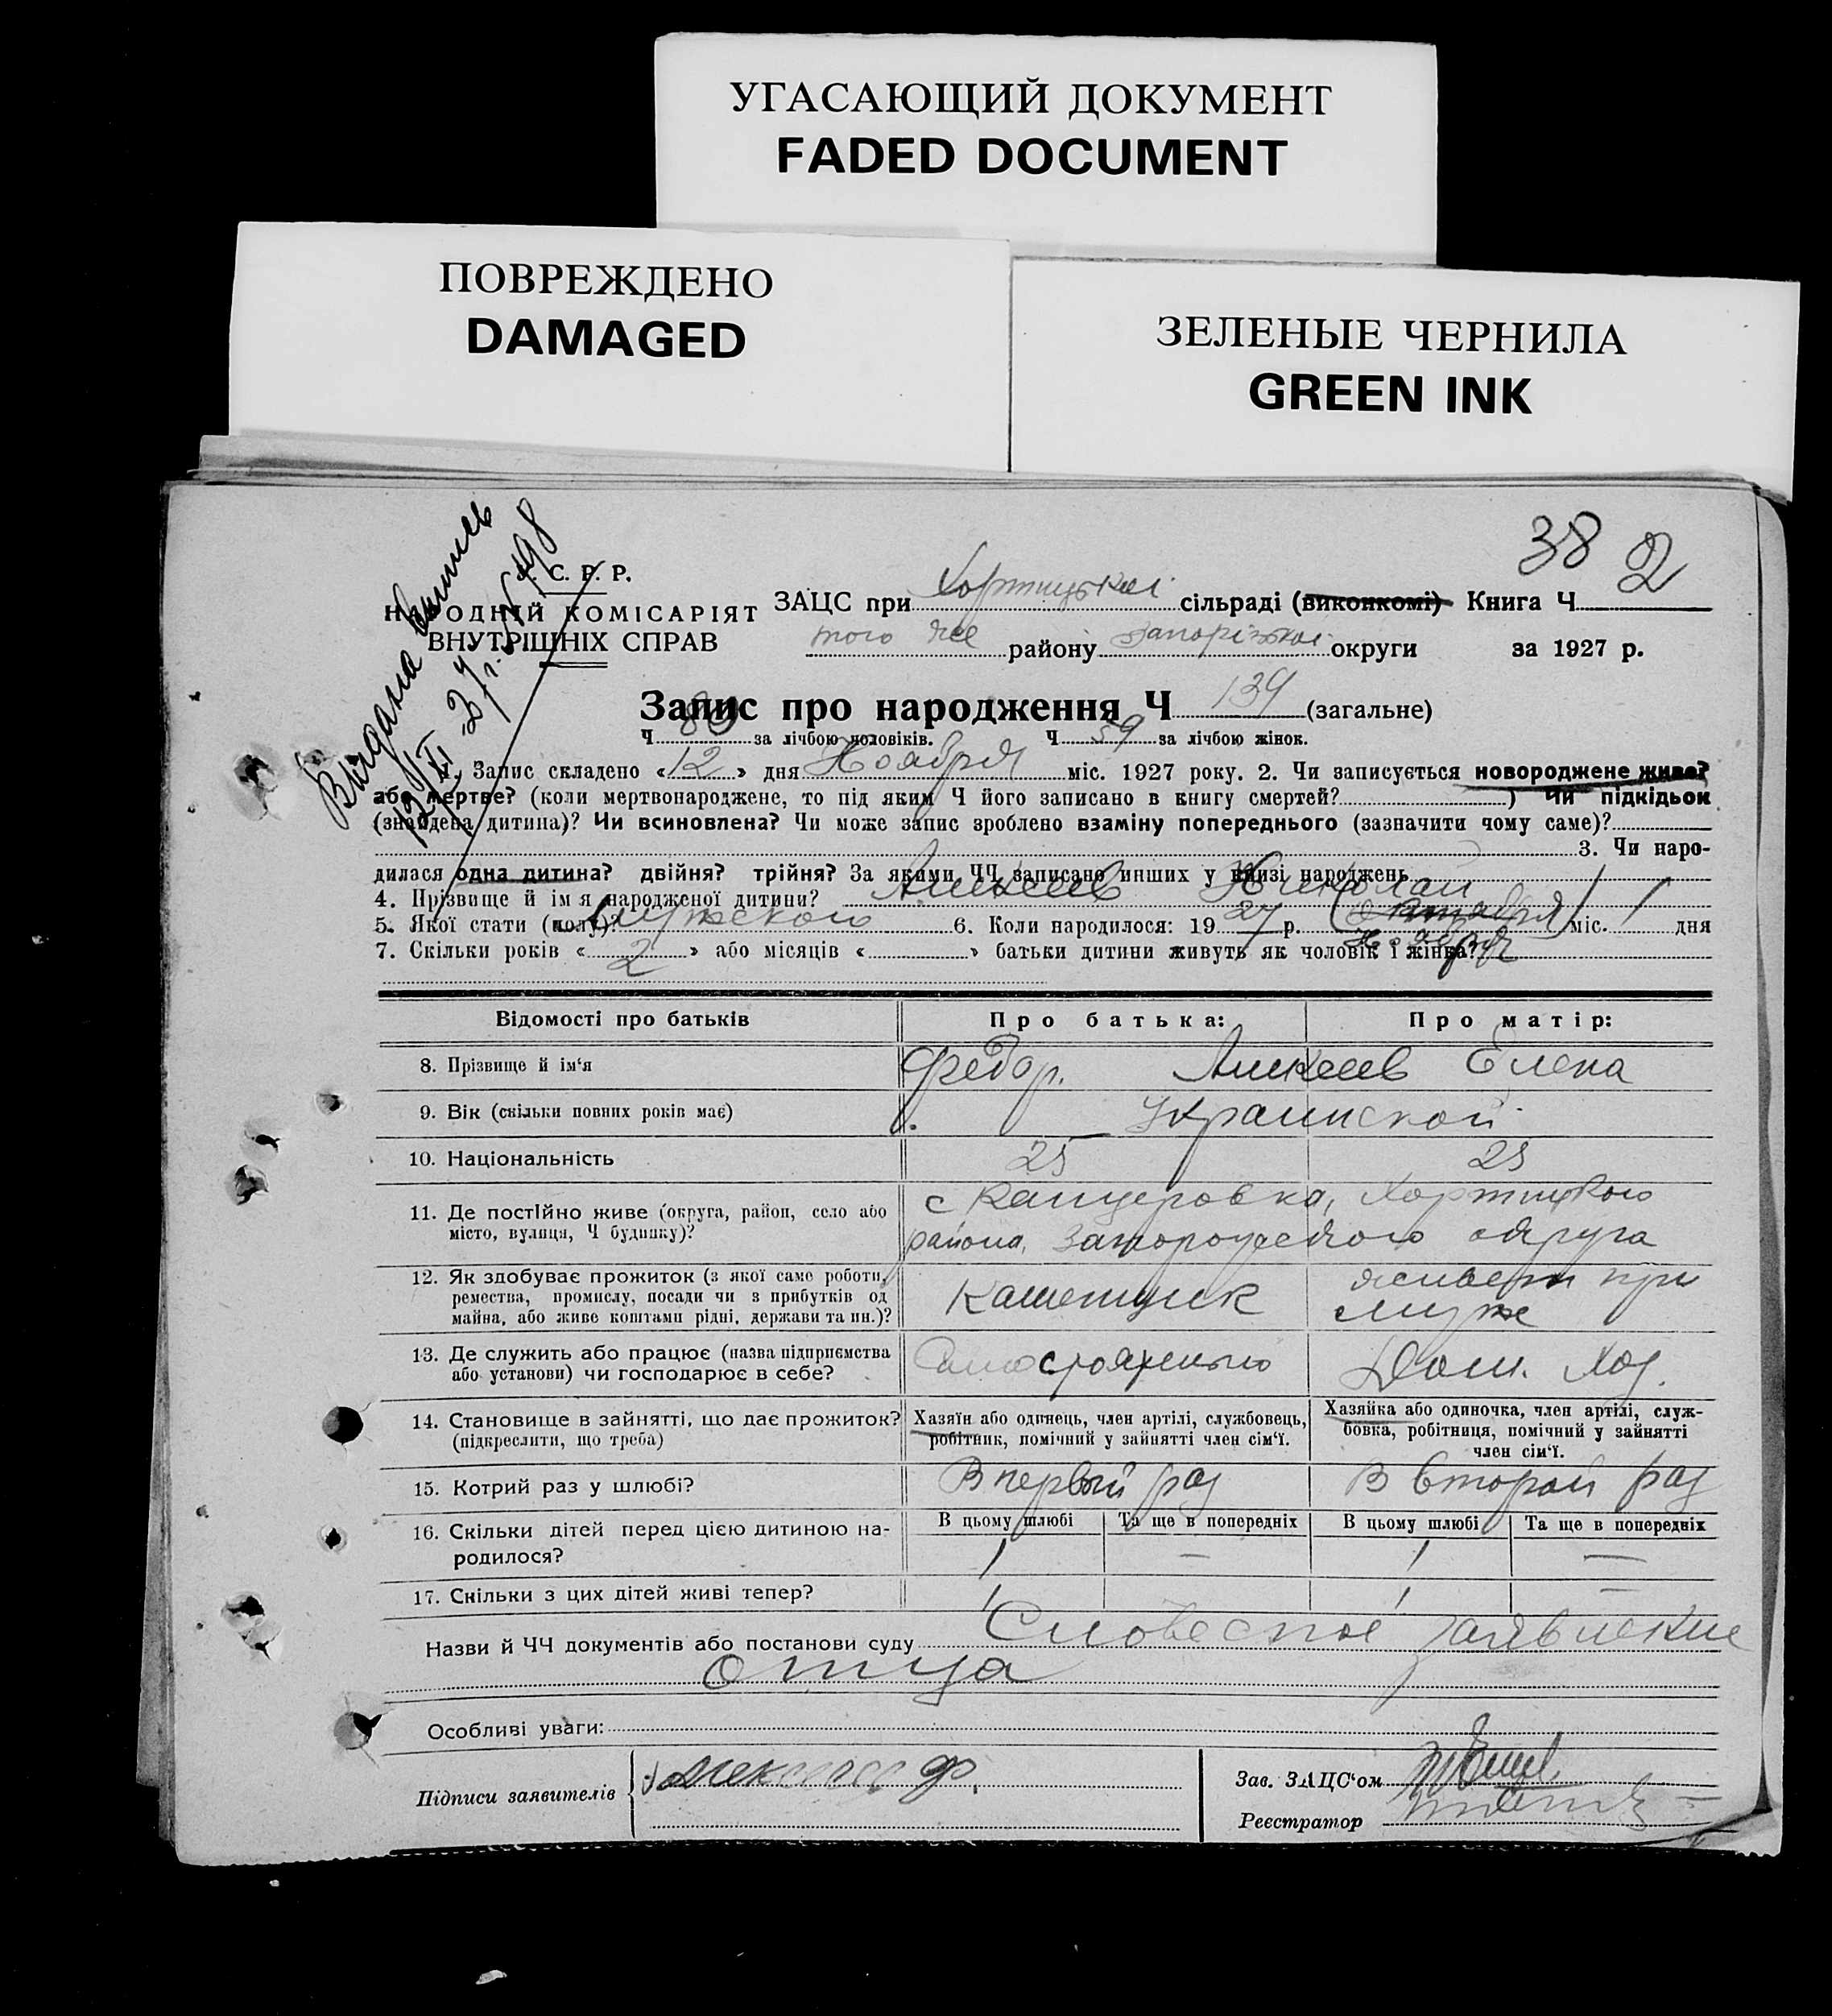 УГАСАЮЩИЙ ДОКУМЕНТ
FADED DOCUMENT
ПОВРЕЖДЕНО
DAMAGED
ЗЕЛЕНЫЕ ЧЕРНИЛА
GREEN INK
38 2
С. Р. Р.
НАРОДНІЙ КОМІСАРІЯТ
ВНУТРІШНІХ СПРАВ
ЗАЦС при Хортицькій сільраді (виконкомі) Книга Ч
того же району Запоріжкої округи за 1927 р.
Запис про народження Ч 139 (загальне)
Ч 80 за лічбою чоловіків. Ч 59 за лічбою жінок.
1. Запис складено «12» дня Ноября міс. 1927 року. 2. Чи записується новороджене живе?
або мертве? (коли мертвонароджене, то під яким Ч його записано в книгу смертей? ) Чи підкідьок
(знайдена дитина)? Чи всиновлена? Чи може запис зроблено взаміну попереднього (зазначити чому саме)?
3. Чи наро-
дилася одна дитина? двійня? трійня? За якими ЧЧ записано инших у книзі народжень
4. Прізвище й імя народженої дитини? Алексеев Николай
5. Якої стати (полу)? мужского 6. Коли народилося: 1927 р. (октября) ноября міс. 1 дня
7. Скільки років «2» або місяців « » батьки дитини живуть як чоловік і жінка?
Відомості про батьків Про батька: Про матір:
8. Прізвище й ім'я Федор. Алексеев Елена
9. Вік (скільки повних років має) Украинской
10. Національність 25 23
11. Де постійно живе (округа, район, село або
місто, вулиця, Ч будинку)?
с Канцеровка, Хортицкого
района, Запорожского округа
12. Як здобуває прожиток (з якої саме роботи,
ремества, промислу, посади чи з прибутків од
майна, або живе коштами рідні, держави та ин.)?
Каменщик
при
муже
13. Де служить або працює (назва підприємства
або установи) чи господарює в себе?
Самостоятельно
Дом. Хоз.
14. Становище в зайнятті, що дає прожиток?
(підкреслити, що треба)
Хазяїн або одинець, член артілі, службовець,
робітник, помічний у зайнятті член сім'ї.
Хазяйка або одиночка, член артілі, служ-
бовка, робітниця, помічний у зайнятті
член сім'ї.
15. Котрий раз у шлюбі? В первый раз В второй раз
16. Скільки дітей перед цією дитиною на-
родилося?
В цьому шлюбі Та ще в попередніх В цьому шлюбі Та ще в попередніх
1 — 1 —
17. Скільки з цих дітей живі тепер? 1 1 —
Назви й ЧЧ документів або постанови суду Словесное заявление
отца
Особливі уваги:
Підписи заявителів Алексеев Ф.
Зав. ЗАЦС'ом
Реєстратор